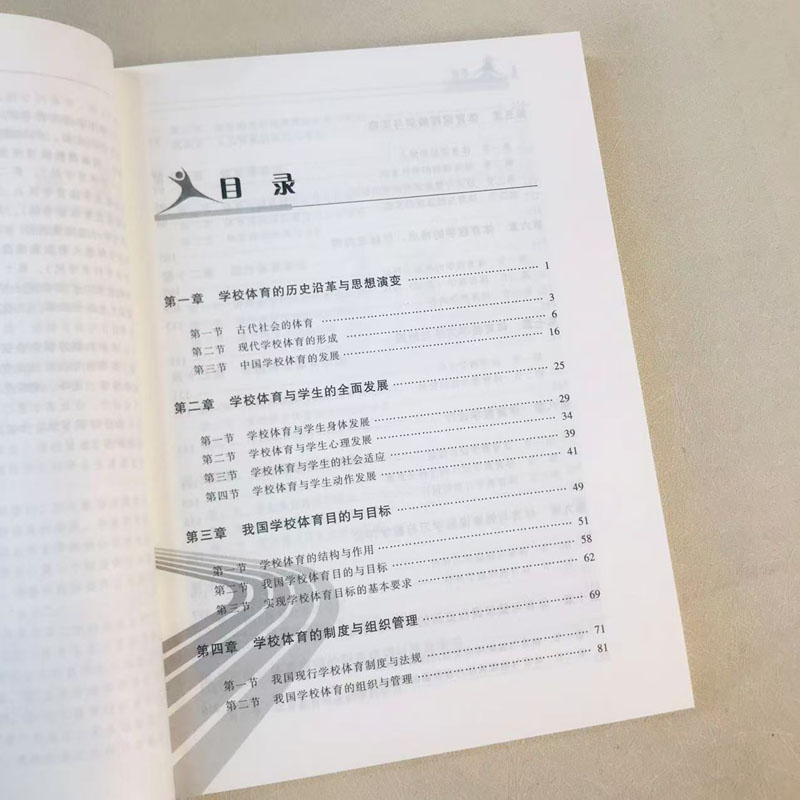 目 录
第一章 学校体育的历史沿革与思想演变 1
第一节 古代社会的体育 3
第二节 现代学校体育的形成 6
第三节 中国学校体育的发展 16
第二章 学校体育与学生的全面发展 25
第一节 学校体育与学生身体发展 29
第二节 学校体育与学生心理发展 34
第三节 学校体育与学生的社会适应 39
第四节 学校体育与学生动作发展 41
第三章 我国学校体育目的与目标 49
第一节 学校体育的结构与作用 51
第二节 我国学校体育目的与目标 58
第三节 实现学校体育目标的基本要求 62
第四章 学校体育的制度与组织管理 69
第一节 我国现行学校体育制度与法规 71
第二节 我国学校体育的组织与管理 81